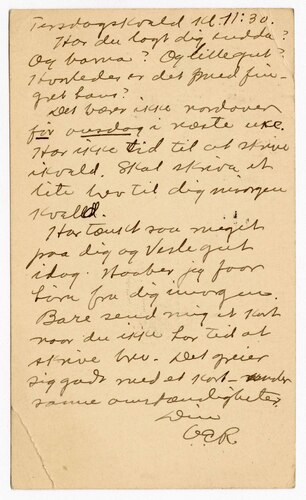 Tirsdagskvald kl 11:30.
Har du lagt dig endda?
Og barna? Og lillegut?
Hvorledes er det med fin-
gret hans?
Det bærer ikke nordover
før onsdag i næste uke.
Har ikke tid til at skrive
ikvald. Skal skrive et
lite brev til dig imorgen
kvald.
Har tænkt saa meget
paa dig og Veslegut
idag. Haaber jeg faar
brev fra dig imorgen.
Bare send mig et kort
naar du ikke har tid at
skrive brev. Det greier
sig godt med et kort – under
samme omstændigheter.
Din
O.E.R.